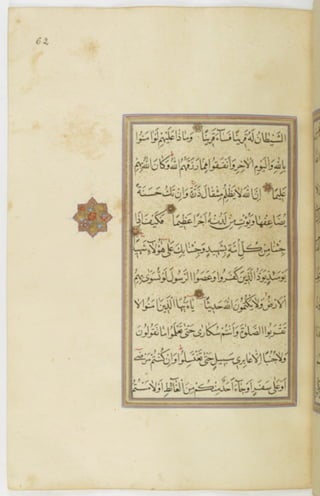 62
الشَّيْطَانُ لَهُ قَرِينًا فَسَاءَ قَرِينًا وَمَاذَا عَلَيْهِمْ لَوْ اٰمَنُوا
بِاللّٰهِ وَالْيَوْمِ الْاٰخِرِ وَاَنْفَقُوا مِمَّا رَزَقَهُمُ اللّٰهُ وَكَانَ اللّٰهُ بِهِمْ
عَلِيمًا اِنَّ اللّٰهَ لَا يَظْلِمُ مِثْقَالَ ذَرَّةٍ وَاِنْ تَكُ حَسَنَةً
يُضَاعِفْهَا وَيُؤْتِ مِنْ لَدُنْهُ اَجْرًا عَظِيمًا فَكَيْفَ اِذَا
جِئْنَا مِنْ كُلِّ اُمَّةٍ بِشَهِيدٍ وَجِئْنَا بِكَ عَلٰى هٰؤُلَاءِ شَهِيدًا
يَوْمَئِذٍ يَوَدُّ الَّذِينَ كَفَرُوا وَعَصَوُا الرَّسُولَ لَوْ تُسَوّٰى بِهِمُ
الْاَرْضُ وَلَا يَكْتُمُونَ اللّٰهَ حَدِيثًا يَا اَيُّهَا الَّذِينَ اٰمَنُوا لَا
تَقْرَبُوا الصَّلٰوةَ وَاَنْتُمْ سُكَارٰى حَتّٰى تَعْلَمُوا مَا تَقُولُونَ
وَلَا جُنُبًا اِلَّا عَابِرِي سَبِيلٍ حَتّٰى تَغْتَسِلُوا وَاِنْ كُنْتُمْ مَرْضٰى
اَوْ عَلٰى سَفَرٍ اَوْ جَاءَ اَحَدٌ مِنْكُمْ مِنَ الْغَائِطِ اَوْ لَامَسْتُمُ